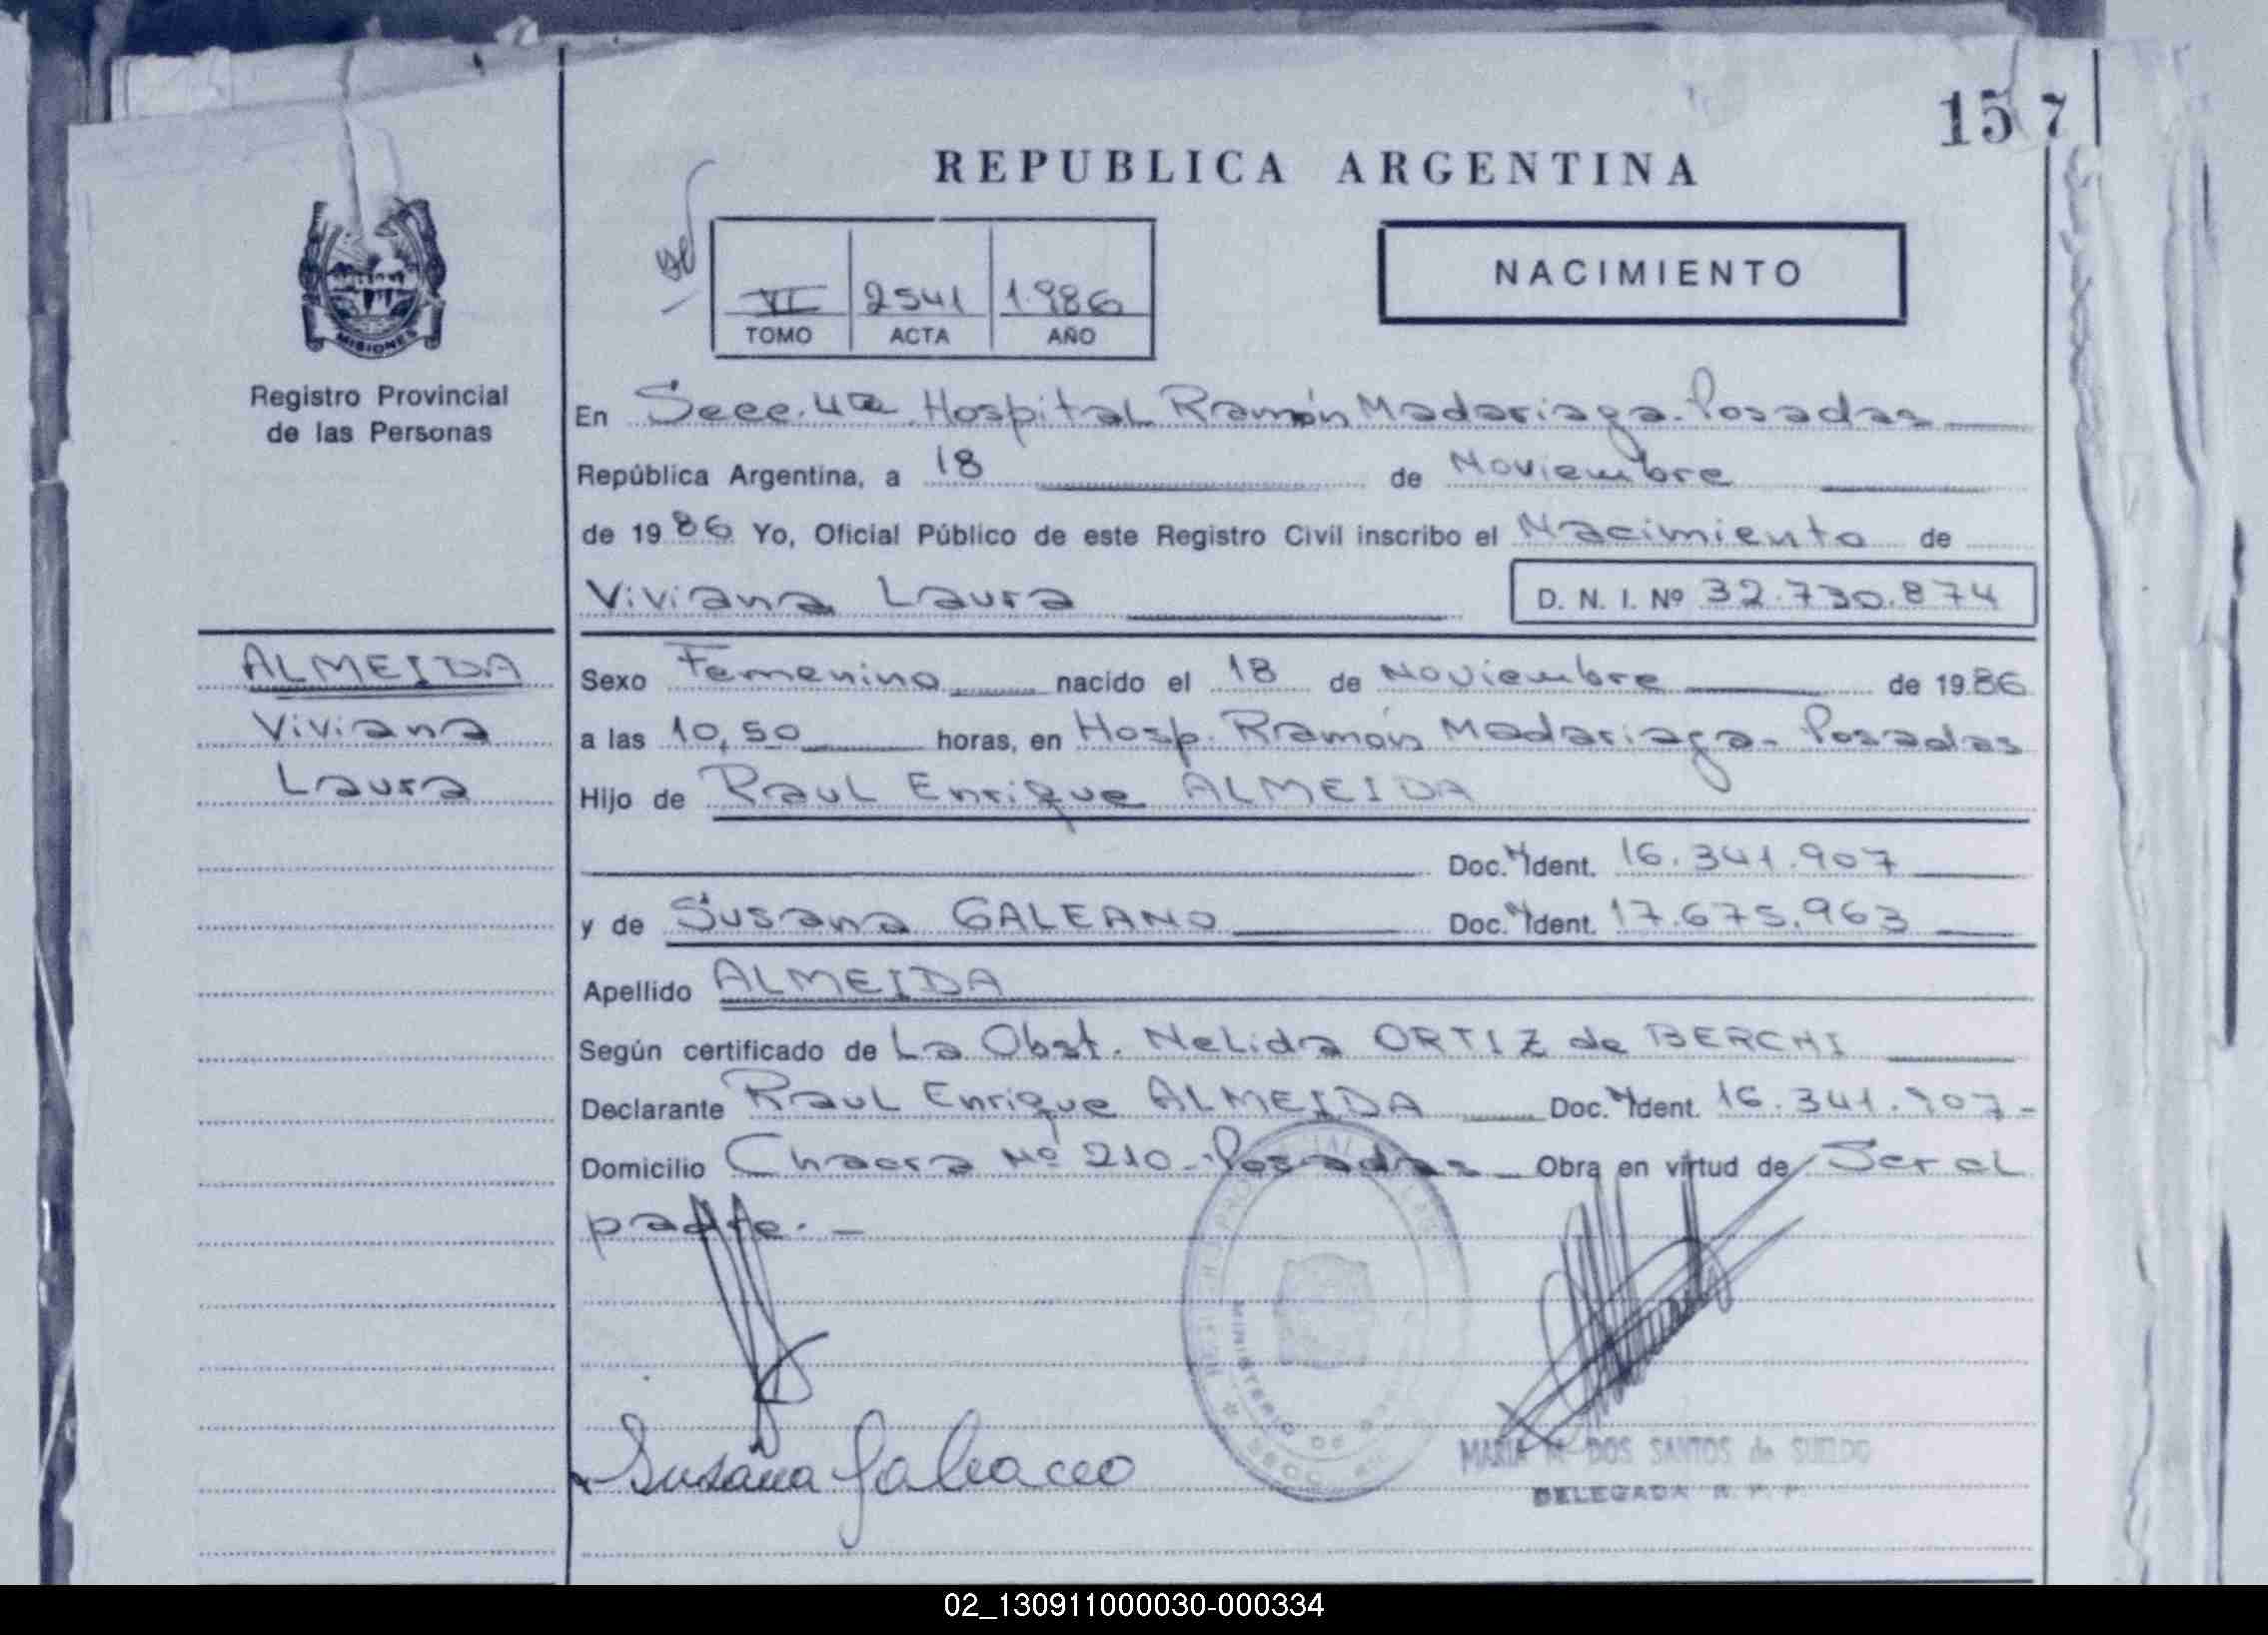 15 7
REPUBLICA ARGENTINA
MISIONES
Registro Provincial
de las Personas
VI 2541 1.986
TOMO ACTA AÑO
NACIMIENTO
En Secc. 4ta Hospital Ramón Madariaga. Posadas
República Argentina, a 18 de Noviembre
de 1986 Yo, Oficial Público de este Registro Civil inscribo el Nacimiento de
Viviana Laura D. N. I. Nº 32.730.874
ALMEIDA
Viviana
Laura
Sexo Femenino nacido el 18 de Noviembre de 1986
a las 10,50 horas, en Hosp. Ramón Madariaga - Posadas
Hijo de Raul Enrique ALMEIDA
Doc. Ident. 16.341.907
y de Susana GALEANO Doc. Ident. 17.675.963
Apellido ALMEIDA
Según certificado de La Obst. Nelida ORTIZ de BERCHI
Declarante Raul Enrique ALMEIDA Doc. Ident. 16.341.907-
Domicilio Chacra Nº 210 - Posadas - Obra en virtud de Ser el
padre. -
MINISTERIO DE
Susana Galeano
MARIA M DOS SANTOS de SUELDO
DELEGADA R. P. P.
02_130911000030-000334